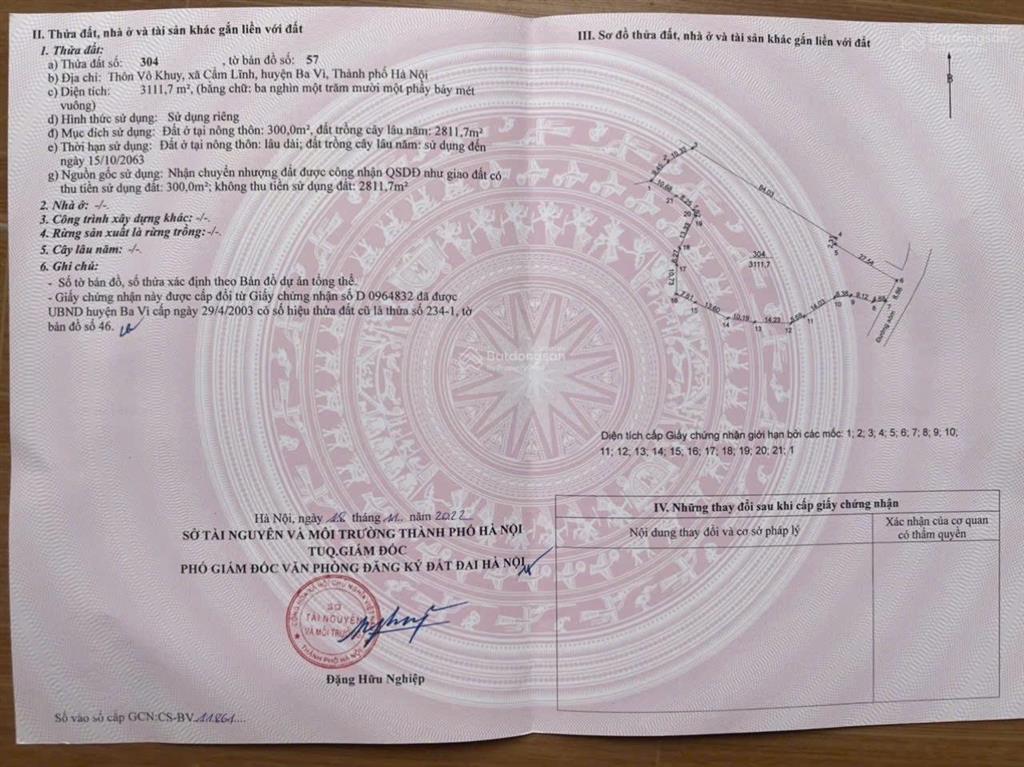 II. Thửa đất, nhà ở và tài sản khác gắn liền với đất
1. Thửa đất:
a) Thửa đất số: 304 , tờ bản đồ số: 57
b) Địa chỉ: Thôn Vô Khuy, xã Cẩm Lĩnh, huyện Ba Vì, Thành phố Hà Nội
c) Diện tích: 3111,7 m², (bằng chữ: ba nghìn một trăm mười một phẩy bảy mét
vuông)
d) Hình thức sử dụng: Sử dụng riêng
đ) Mục đích sử dụng: Đất ở tại nông thôn: 300,0m², đất trồng cây lâu năm: 2811,7m²
e) Thời hạn sử dụng: Đất ở tại nông thôn: lâu dài; đất trồng cây lâu năm: sử dụng đến
ngày 15/10/2063
g) Nguồn gốc sử dụng: Nhận chuyển nhượng đất được công nhận QSDĐ như giao đất có
thu tiền sử dụng đất: 300,0m²; không thu tiền sử dụng đất: 2811,7m²
2. Nhà ở: -/-.
3. Công trình xây dựng khác: -/-.
4. Rừng sản xuất là rừng trồng:-/-.
5. Cây lâu năm: -/-.
6. Ghi chú:
- Số tờ bản đồ, số thửa xác định theo Bản đồ dự án tổng thể.
- Giấy chứng nhận này được cấp đổi từ Giấy chứng nhận số D 0964832 đã được
UBND huyện Ba Vì cấp ngày 29/4/2003 có số hiệu thửa đất cũ là thửa số 234-1, tờ
bản đồ số 46.
Hà Nội, ngày 18 tháng 11 năm 2022
SỞ TÀI NGUYÊN VÀ MÔI TRƯỜNG THÀNH PHỐ HÀ NỘI
TUQ.GIÁM ĐỐC
PHÓ GIÁM ĐỐC VĂN PHÒNG ĐĂNG KÝ ĐẤT ĐAI HÀ NỘI
SỞ
TÀI NGUYÊN
VÀ MÔI TRƯỜNG
THÀNH PHỐ HÀ NỘI
Đặng Hữu Nghiệp
Số vào sổ cấp GCN:CS-BV 11861....
III. Sơ đồ thửa đất, nhà ở và tài sản khác gắn liền với đất
Batdongsan
B
10.33
64.03
10.68
8.25
13.39
10.73
304
3111,7
2.31
27.56
8.86
7.61
13.60
10.19
14.23
5.59
14.03
8.36
9.12
4.88
Đường xóm
Batdongsan
Diện tích cấp Giấy chứng nhận giới hạn bởi các mốc: 1; 2; 3; 4; 5; 6; 7; 8; 9; 10;
11; 12; 13; 14; 15; 16; 17; 18; 19; 20; 21; 1
IV. Những thay đổi sau khi cấp giấy chứng nhận
Nội dung thay đổi và cơ sở pháp lý
Xác nhận của cơ quan
có thẩm quyền